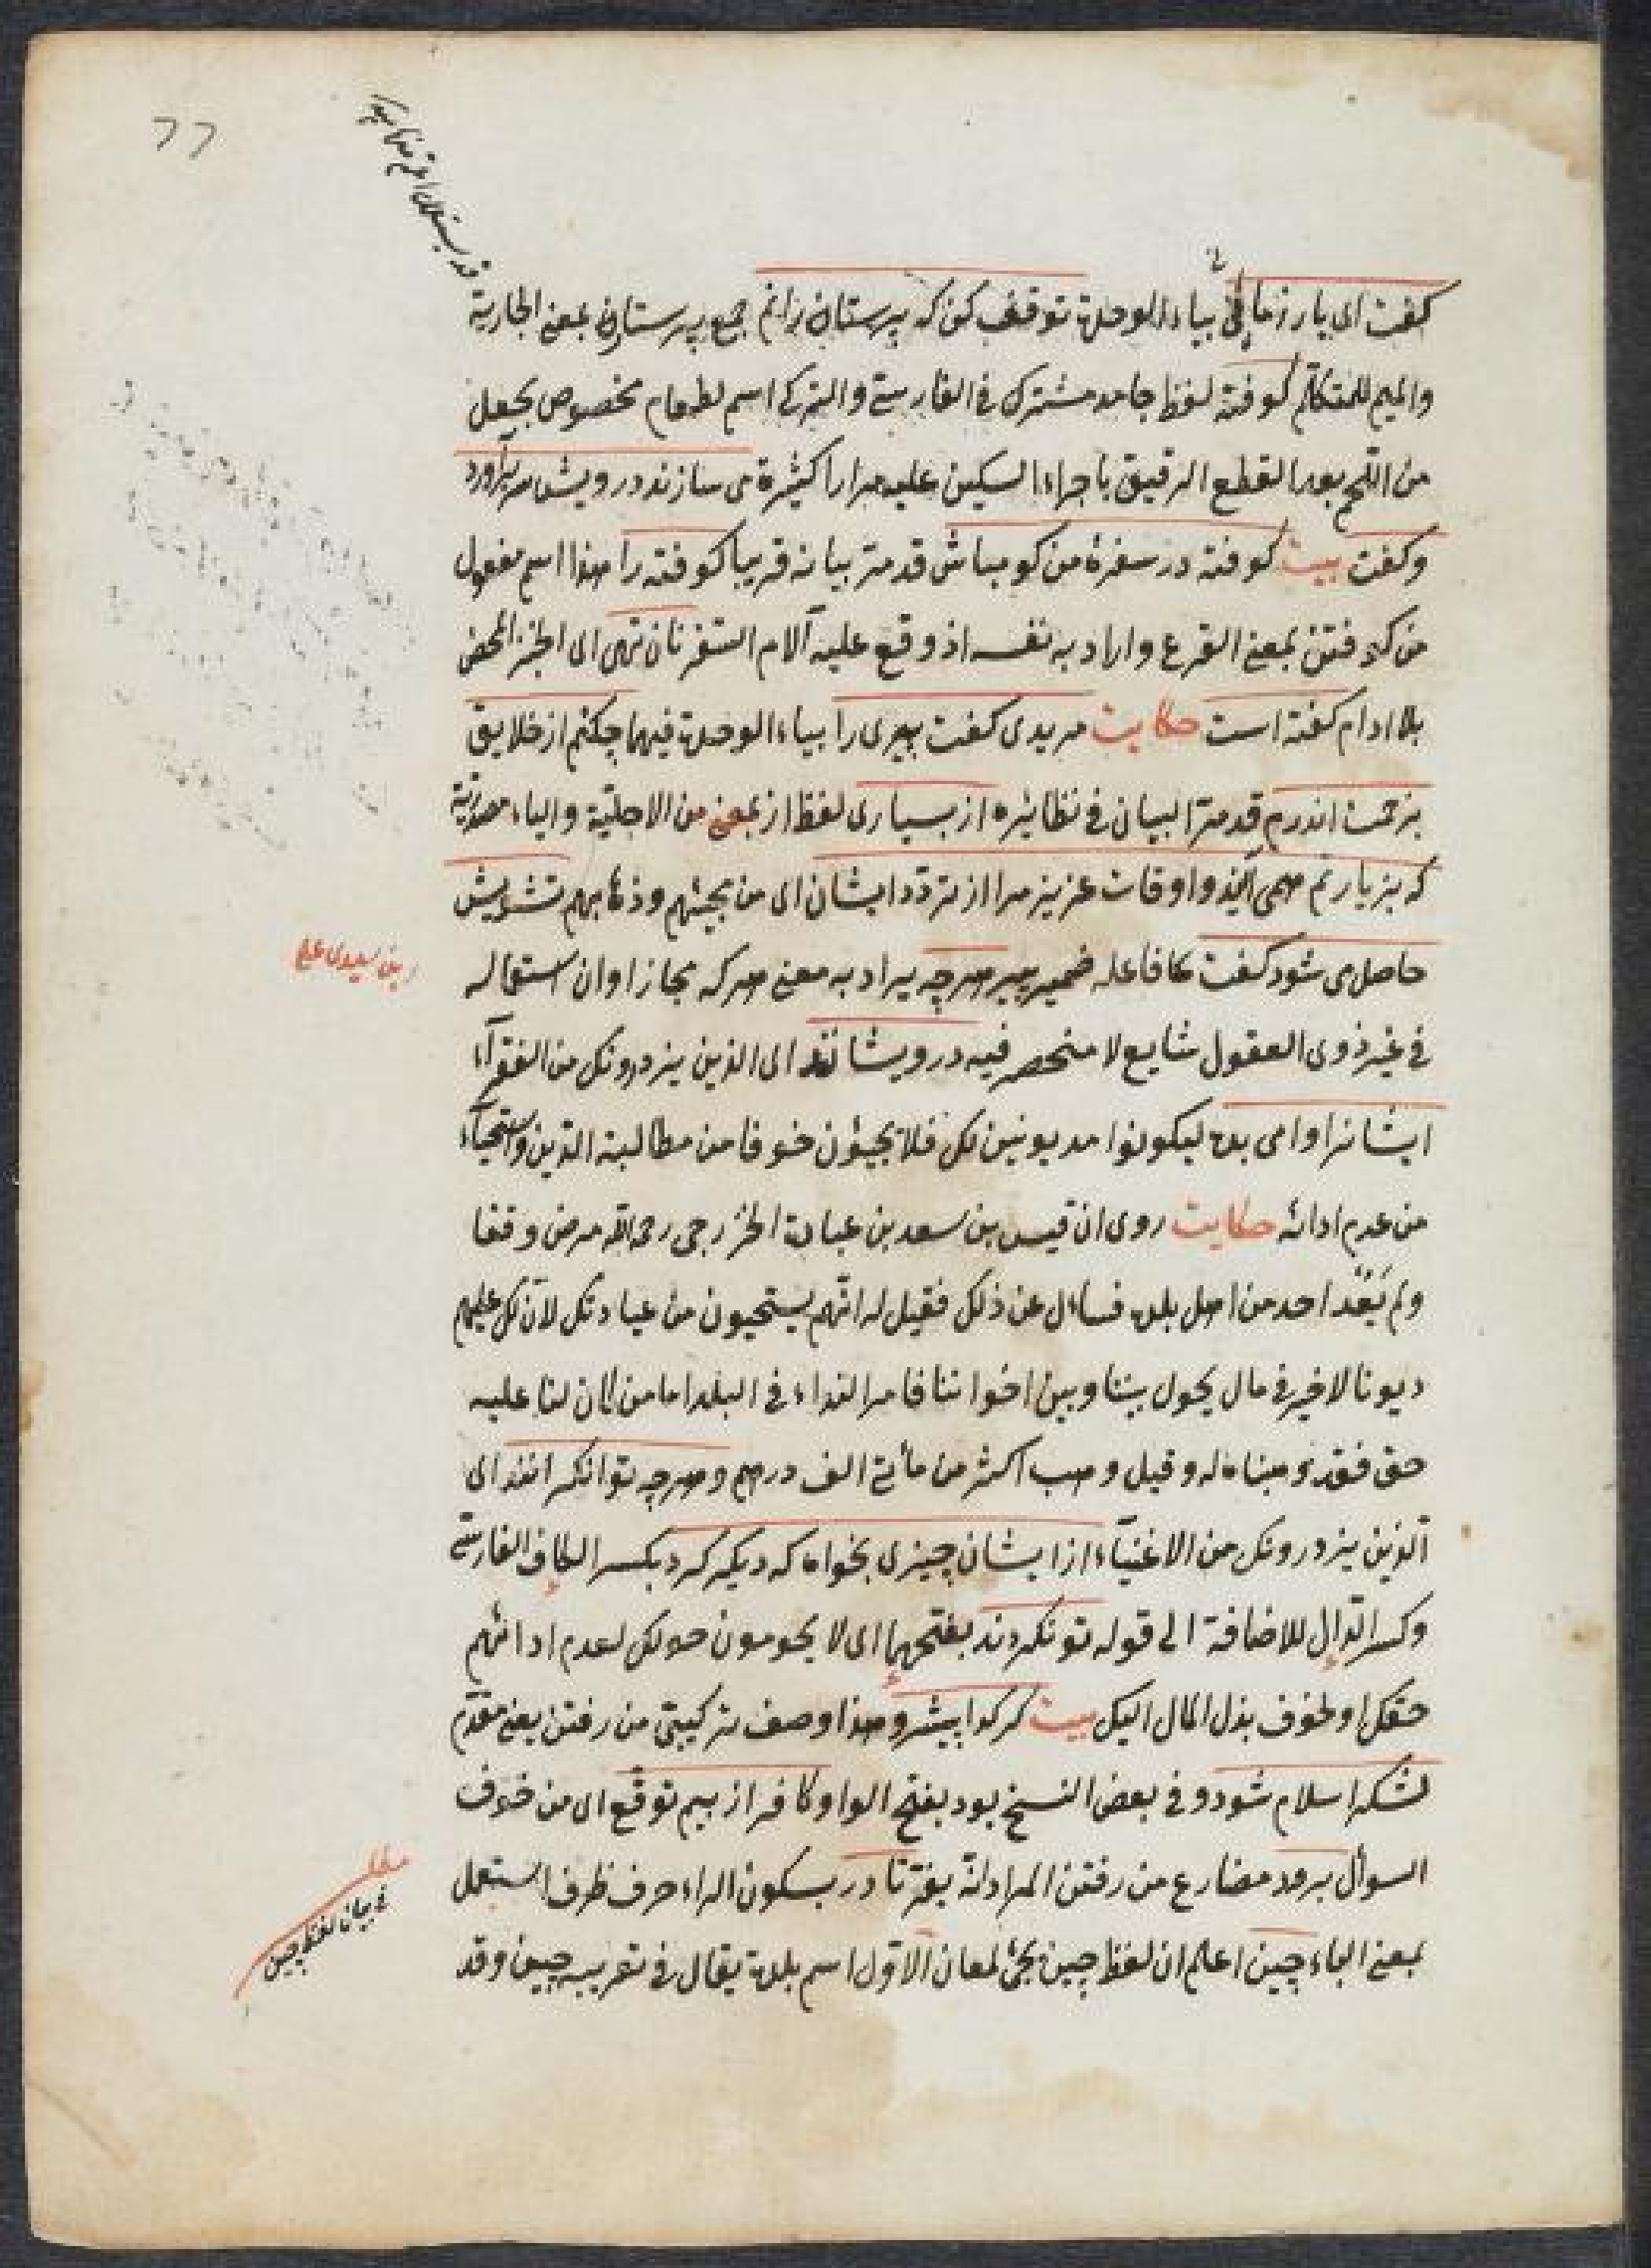 كفت اى يار زمانى بياء الوحدة توقف كن كه پرستارن زانم جمع پرستارن بمعنى الجارية
والميم للمتكلم كوفته لفظ جامد مشترك فى الفارسية والتركى اسم لطعام مخصوص يجعل
من اللحم بعد القطع الرقيق باجراء السكين عليه مرارا كثيرة مى سازند درويش سر برآورد
وكفت بيت كوفته در سفرۀ من كو مباش قد مر بيانه قريبا كوفته را هذا اسم مفعول
من كوفتن بمعنى القرع واراد به نفسه اذ وقع عليه آلام السفر نان تهى اى الخبز المحض
بلا ادام كفته است حكايت مريدى كفت پيرى را بياء الوحدة فيهما چكنم از خلايق
بزحمت اندرم قد مر البيان فى نظائره از بسيارى لفظ از بمعنى من الاجلية والياء مصدرية
كه بزيارتم همى آيند واوقات عزيز مرا از تردد ايشان اى من مجيئهم وذهابهم تشويش
حاصل مى شود كفت فاعله ضمير پير هرچه يراد به معنى هركه مجازا وان استعماله
فى غير ذوى العقول شايع لا منحصر فيه درويشانند اى الذين يزورونك من الفقراء
ايشانرا وامى بده ليكونوا مديونين لك فلا يجيؤن خوفا من مطالبة الدين واستحياء
من عدم ادائه حكايت روى ان قيس بن سعد بن عبادة الخزرجى رحمه الله مرض وقفا
ولم يَعُدْ احد من اهل بلده فسأل عن ذلك فقيل له انهم يستحيون من عيادتك لان لك عليهم
ديونا لا خير فى مال يحول بيننا وبين اخواننا فامر النداء فى البلد اما من كان لنا عليه
حق فقد وهبناه له وقيل وهب اكثر من مأية الف درهم وهرچه توانكرانند اى
الذين يزورونك من الاغنياء از ايشان چيزى بخواه كه ديكر كرد بكسر الكاف الفارسى
وكسر الدال للاضافة الى قوله تو نكردند بفتحهما اى لا يحومون حولك لعدم ادائهم
حقك او لخوف بذل المال اليك بيت كر كدا پيشرو هذا وصف تركيبى من رفتن يعنى مقدم
لشكر اسلام شود وفى بعض النسخ بود بفتح الواو كافر از بيم توقع اى من خوف
السوأل برود مضارع من رفتن المراد تا در بسكون الراء حرف ظرف استعمل
بمعنى الباء چين اعلم ان لفظ چين يجئ لمعان الاول اسم بلدة يقال فى تعريبه صين وقد
مطلب
فى بيان لفظ چين